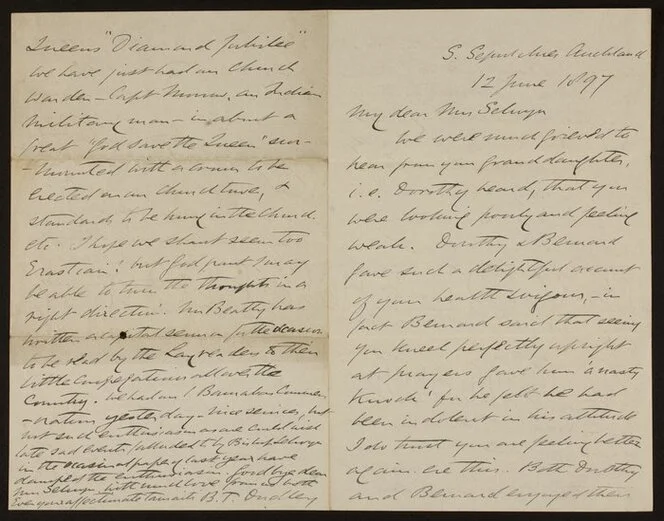 S. Sepulchres Auckland
12 June 1897
My dear Mrs Selwyn
We were much grieved to
hear from your granddaughter,
i.e. Dorothy heard, that you
were looking poorly and feeling
weak. Dorothy & Bernard
gave such a delightful account
of your health & vigour, – in
fact Bernard said that seeing
you kneel perfectly upright
at prayers gave him 'a nasty
knock' for he felt he had
been indolent in his attitude
I do trust you are feeling better
again ere this. Both Dorothy
and Bernard enjoyed their
Queen's "Diamond Jubilee"
we have just had our Church
Warden – Capt Morrow, an Indian
military man – in about a
great 'God save the Queen' sur-
-mounted with a crown to be
erected on our Church tower, &
standards to be hung in the Church
etc. I hope we shan't seem too
Erastian! but God grant I may
be able to turn the thoughts in a
right direction. Mr Beatty has
written a capital sermon for the occasion
to be read by the Layreaders to their
little congregations all over the
country. We had our Commem-
-oration yesterday – nice service, but
not such enthusiasm as we could wish
late sad events alluded to by Bishop Selwyn
in the occasional paper last year have
damped the enthusiasm. Goodbye dear
Mrs Selwyn with much love from us both
Ever your affectionate B. T. Dudley